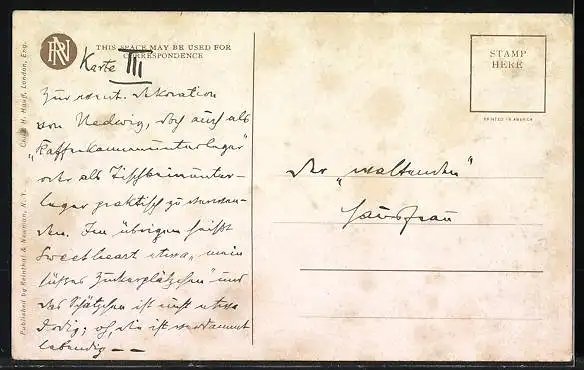 RN
THIS SPACE MAY BE USED FOR
CORRESPONDENCE
Karte III
Zur event. Dekoration
von Hedwig, doch auch als
"Kaffeekannenunterleger"
oder als Tischbeinunter-
leger praktisch zu verwen-
den. Im übrigen heißt
Sweetheart etwa "mein
süßes Zuckerplätzchen" und
das Schätzchen ist nicht etwa
; oh, die ist verdammt
lebendig — —
STAMP
HERE
PRINTED IN AMERICA
Der "waltenden"
Hausfrau
Published by Reinthal & Newman, N. Y.
Chas. H. Hauff, London, Eng.